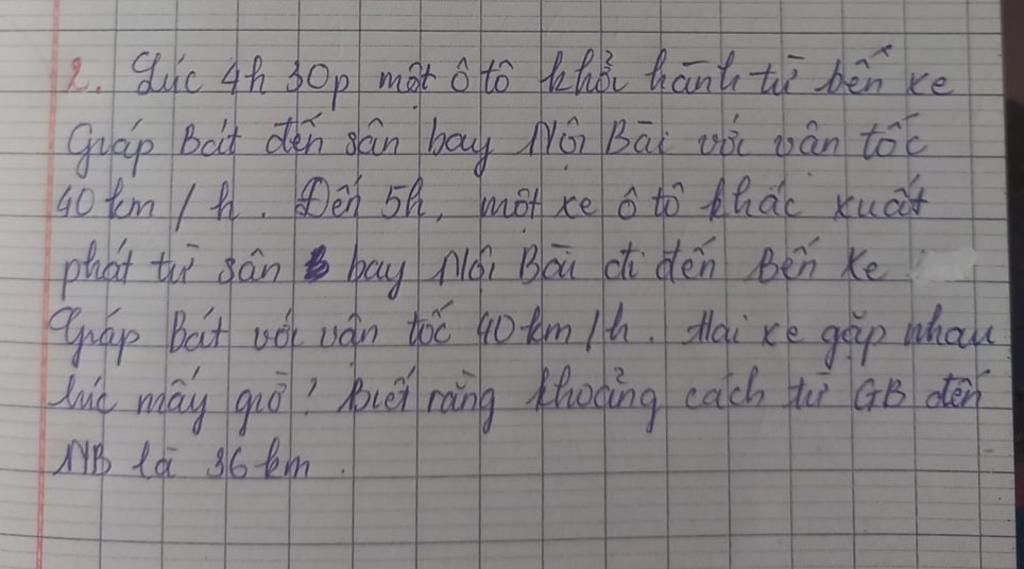 2. Lúc 4h 30p một ô tô khởi hành từ bến xe
Giáp Bát đến sân bay Nội Bài với vận tốc
40 km / h. Đến 5h, một xe ô tô khác xuất
phát từ sân bay Nội Bài đi đến Bến Xe
Giáp Bát với vận tốc 40 km / h. Hai xe gặp nhau
lúc mấy giờ? Biết rằng khoảng cách từ GB đến
NB là 36 km.